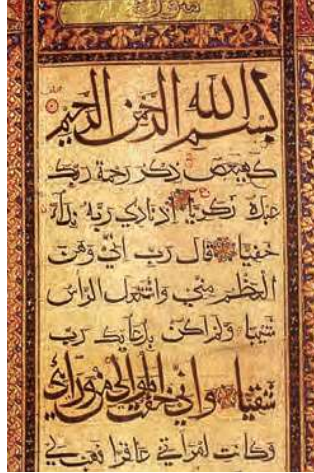 بِسْمِ اللهِ الرَّحْمٰنِ الرَّحِيْمِ
كهيعص ذكر رحمة ربك
عبده زكريا اذ نادي ربه نداء
خفيا قال رب اني وهن
العظم مني واشتعل الراس
شيبا ولم اكن بدعايك رب
شقيا واني خفت الموالي من وراءي
وكانت امراتي عاقرا فهب لي